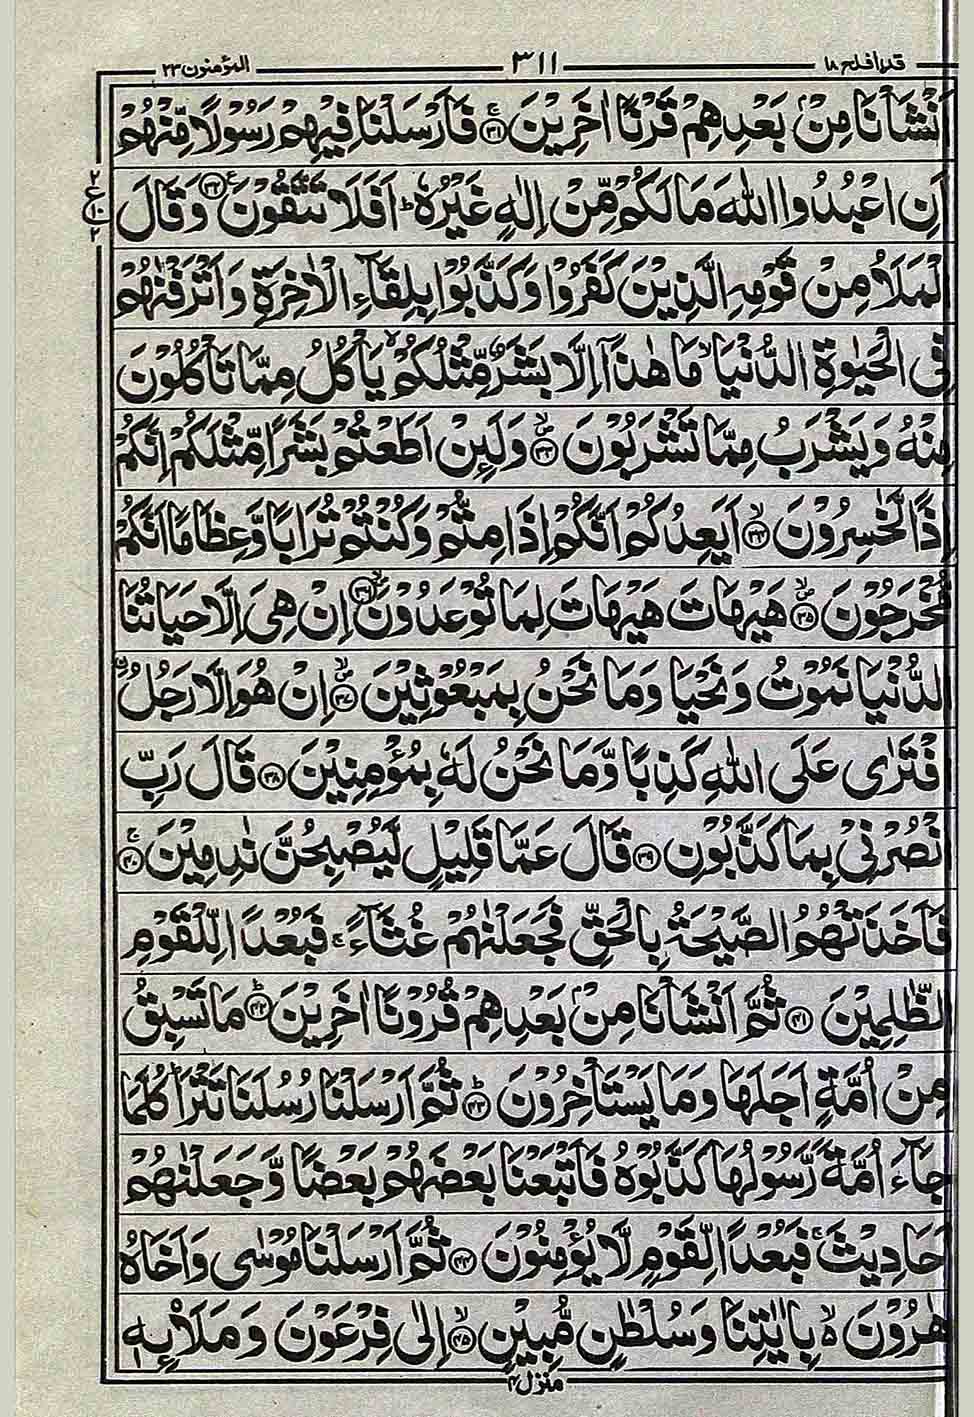 قد افلح ١٨ ٣١١ المؤمنون ٢٣
اَنْشَاْنَا مِنْۢ بَعْدِهِمْ قَرْنًا اٰخَرِيْنَ ۝٣١ۚ فَاَرْسَلْنَا فِيْهِمْ رَسُوْلًا مِّنْهُمْ
اَنِ اعْبُدُوا اللّٰهَ مَا لَكُمْ مِّنْ اِلٰهٍ غَيْرُهٗ ؕ اَفَلَا تَتَّقُوْنَ ۝٣٢ۧ وَ قَالَ
ع
الْمَلَاُ مِنْ قَوْمِهِ الَّذِيْنَ كَفَرُوْا وَ كَذَّبُوْا بِلِقَآءِ الْاٰخِرَةِ وَ اَتْرَفْنٰهُمْ
فِي الْحَيٰوةِ الدُّنْيَا ۙ مَا هٰذَاۤ اِلَّا بَشَرٌ مِّثْلُكُمْ ۙ يَاْكُلُ مِمَّا تَاْكُلُوْنَ
مِنْهُ وَ يَشْرَبُ مِمَّا تَشْرَبُوْنَ ۝٣٣ۙ وَ لَىِٕنْ اَطَعْتُمْ بَشَرًا مِّثْلَكُمْ اِنَّكُمْ
اِذًا لَّخٰسِرُوْنَ ۝٣٤ۙ اَيَعِدُكُمْ اَنَّكُمْ اِذَا مِتُّمْ وَ كُنْتُمْ تُرَابًا وَّ عِظَامًا اَنَّكُمْ
مُّخْرَجُوْنَ ۝٣٥ۙ هَيْهَاتَ هَيْهَاتَ لِمَا تُوْعَدُوْنَ ۝٣٦ۙ اِنْ هِيَ اِلَّا حَيَاتُنَا
الدُّنْيَا نَمُوْتُ وَ نَحْيَا وَ مَا نَحْنُ بِمَبْعُوْثِيْنَ ۝٣٧ۙ اِنْ هُوَ اِلَّا رَجُلُ
افْتَرٰى عَلَى اللّٰهِ كَذِبًا وَّ مَا نَحْنُ لَهٗ بِمُؤْمِنِيْنَ ۝٣٨ قَالَ رَبِّ
انْصُرْنِيْ بِمَا كَذَّبُوْنِ ۝٣٩ قَالَ عَمَّا قَلِيْلٍ لَّيُصْبِحُنَّ نٰدِمِيْنَ ۝٤٠ۚ
فَاَخَذَتْهُمُ الصَّيْحَةُ بِالْحَقِّ فَجَعَلْنٰهُمْ غُثَآءً ۚ فَبُعْدًا لِّلْقَوْمِ
الظّٰلِمِيْنَ ۝٤١ ثُمَّ اَنْشَاْنَا مِنْۢ بَعْدِهِمْ قُرُوْنًا اٰخَرِيْنَ ۝٤٢ؕ مَا تَسْبِقُ
مِنْ اُمَّةٍ اَجَلَهَا وَ مَا يَسْتَاْخِرُوْنَ ۝٤٣ؕ ثُمَّ اَرْسَلْنَا رُسُلَنَا تَتْرَا ؕ كُلَّمَا
جَآءَ اُمَّةً رَّسُوْلُهَا كَذَّبُوْهُ فَاَتْبَعْنَا بَعْضَهُمْ بَعْضًا وَّ جَعَلْنٰهُمْ
اَحَادِيْثَ ۚ فَبُعْدًا لِّقَوْمٍ لَّا يُؤْمِنُوْنَ ۝٤٤ ثُمَّ اَرْسَلْنَا مُوْسٰى وَ اَخَاهُ
هٰرُوْنَ ۙ۬ بِاٰيٰتِنَا وَ سُلْطٰنٍ مُّبِيْنٍ ۝٤٥ۙ اِلٰى فِرْعَوْنَ وَ مَلَا۠ىِٕهٖ
منزل ٤